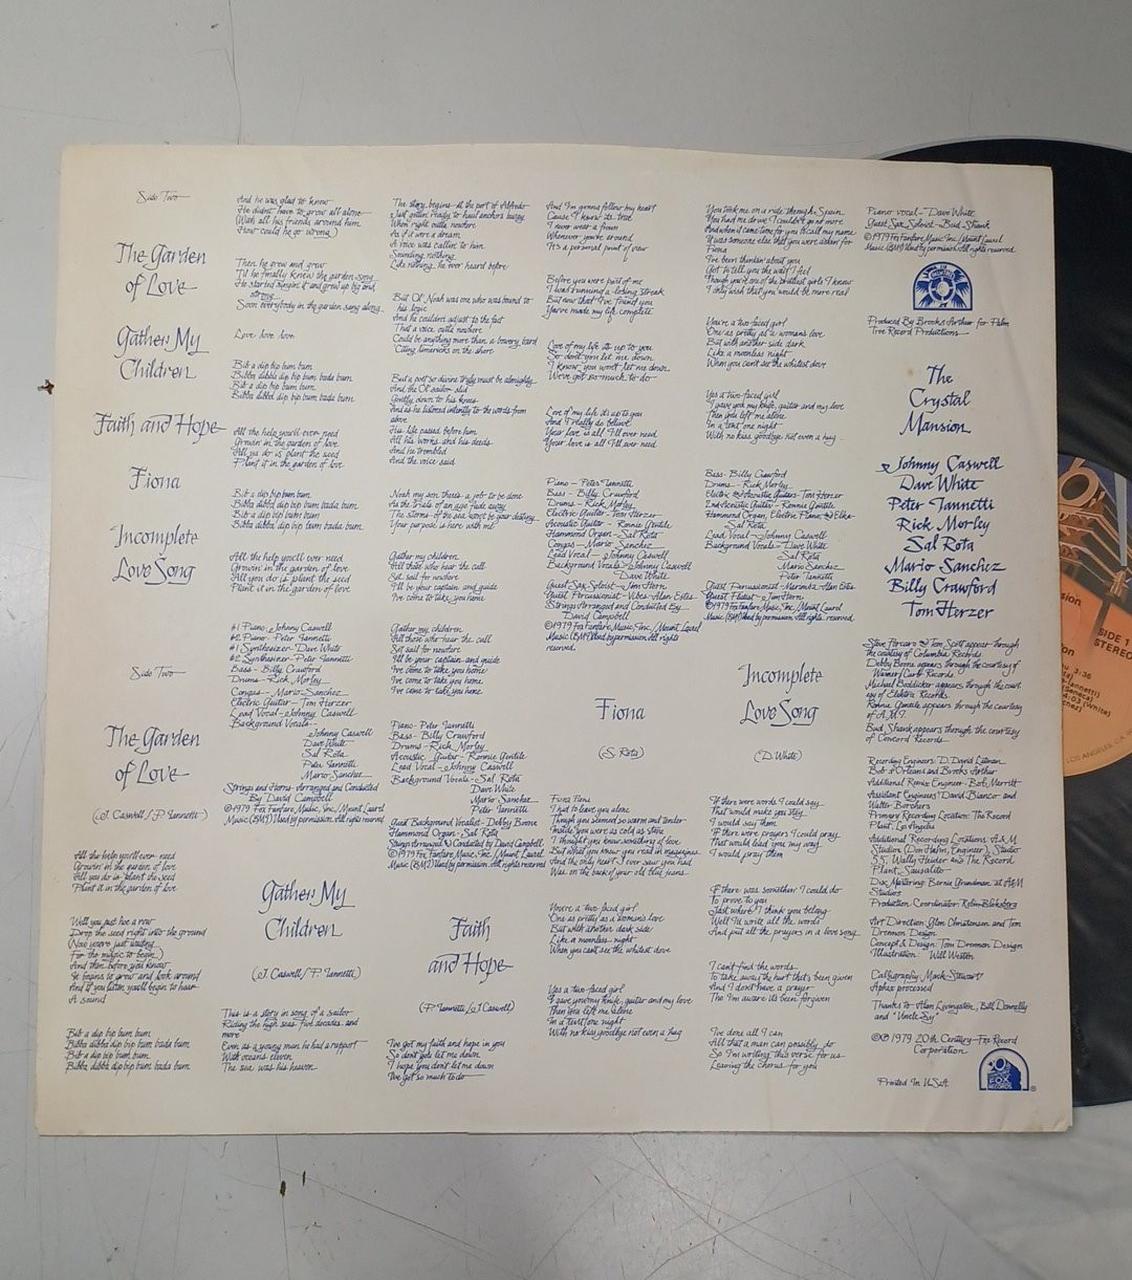 Side Two
The Garden
of Love
Gather My
Children
Faith and Hope
Fiona
Incomplete
Love Song
Side Two
The Garden
of Love
(J. Caswell / P. Iannetti)
All the help you'll ever need
Growin' in the garden of love
All you do is plant the seed
Plant it in the garden of love
Well you just hoe a row
Drop the seed right into the ground
(Now you're just waiting
For the magic to begin)
And then before you know
It begins to grow and look around
And if you listen you'll begin to hear
A sound
Bib a dip bip bum bum
Bibba dibba dip bip bum bada bum
Bib a dip bip bum bum
Bibba dibba dip bip bum bada bum
And he was glad to know
He didn't have to grow all alone
(With all his friends around him
How could he go wrong)
Then he grew and grew
'Til he finally knew the garden song
He started singin' it and grew up big and
strong
Soon everybody in the garden sang along
Love love love
Bib a dip bip bum bum
Bibba dibba dip bip bum bada bum
Bib a dip bip bum bum
Bibba dibba dip bip bum bada bum
All the help you'll ever need
Growin' in the garden of love
All ya do is plant the seed
Plant it in the garden of love
Bib a dip bip bum bum
Bibba dibba dip bip bum bada bum
Bib a dip bip bum bum
Bibba dibba dip bip bum bada bum
All the help you'll ever need
Growin' in the garden of love
All you do is plant the seed
Plant it in the garden of love
#1 Piano - Johnny Caswell
#2 Piano - Peter Iannetti
#1 Synthesizer - Dave White
#2 Synthesizer - Peter Iannetti
Bass - Billy Crawford
Drums - Rick Morley
Congas - Mario Sanchez
Electric Guitar - Tom Herzer
Lead Vocal - Johnny Caswell
Background Vocals -
Johnny Caswell
Dave White
Sal Rota
Peter Iannetti
Mario Sanchez
Strings and Horns Arranged and Conducted
By David Campbell
©1979 Fox Fanfare Music, Inc./Mount Laurel
Music (BMI) Used by permission. All rights reserved
Gather My
Children
(J. Caswell / P. Iannetti)
This is a story in song of a sailor
Riding the high seas five decades and
more
Even as a young man he had a rapport
With oceans eleven
The sea was his heaven
The story begins at the port of
Just gettin' ready to haul anchors away
When right outta nowhere
As if it were a dream
A voice was callin' to him
Sounding nothing
Like nothing he ever heard before
But Ol' Noah was one who was found to
his logic
And he couldn't adjust to the fact
That a voice outta nowhere
Could be anything more than a bowery bard
'Citing limericks on the shore
But a poet so divine truly must be almighty
And the Ol' sailor slid
Gently down to his knees
And as he listened intently to the words from
above
His life passed before him
All his works and his deeds
And he trembled
And the voice said
Noah my son there's a job to be done
As the trials of an age fade away
The storms of the sea won't be your destiny
Your purpose is here with me
Gather my children
All those who hear the call
Set sail for nowhere
I'll be your captain and guide
I've come to take you home
Gather my children
All those who hear the call
Set sail for nowhere
I'll be your captain and guide
I've come to take you home
I've come to take you home
I've come to take you home
Piano - Peter Iannetti
Bass - Billy Crawford
Drums - Rick Morley
Acoustic Guitar - Ronnie Gentile
Lead Vocal - Johnny Caswell
Background Vocals - Sal Rota
Dave White
Mario Sanchez
Peter Iannetti
Guest Background Vocalist - Debby Boone
Hammond Organ - Sal Rota
Strings Arranged & Conducted by David Campbell
©1979 Fox Fanfare Music, Inc./Mount Laurel
Music (BMI) Used by permission. All rights reserved
Faith
and Hope
(P. Iannetti / J. Caswell)
I've got my faith and hope in you
So don't you let me down
I hope you don't let me down
I've got so much to do
And I'm gonna follow my heart
Cause I know its true
I never wear a frown
Whenever you're around
It's a personal point of view
Before you were part of me
I was running a losing streak
But now that I've found you
You've made my life complete
Love of my life it's up to you
So don't you let me down
I know you won't let me down
We've got so much to do
Love of my life it's up to you
And I really do believe
Your love is all I'll ever need
Your love is all I'll ever need
Piano - Peter Iannetti
Bass - Billy Crawford
Drums - Rick Morley
Electric Guitar - Tom Herzer
Acoustic Guitar - Ronnie Gentile
Hammond Organ - Sal Rota
Congas - Mario Sanchez
Lead Vocal - Johnny Caswell
Background Vocals - Johnny Caswell
Dave White
Guest Sax Soloist - Jim Horn
Guest Percussionist - Vibes - Alan Estes
Strings Arranged and Conducted By
David Campbell
©1979 Fox Fanfare Music, Inc./Mount Laurel
Music (BMI) Used by permission. All rights
reserved.
Fiona
(S. Rota)
Fiona Fiona
I had to leave you alone
Though you seemed so warm and tender
Inside you were as cold as stone
I thought you knew something of love
But what you knew you read in magazines
And the only heart I ever saw you had
Was on the back of your old blue jeans
You're a two-faced girl
One as pretty as a woman's love
But with another dark side
Like a moonless night
When you can't see the whitest dove
Yes a two-faced girl
I gave you my knife, guitar and my love
Then you left me alone
In a tent one night
With no kiss goodbye not even a hug
You took me on a ride through Spain
You had me drive 'til I couldn't go no more
And when it came time for you to call my name
It was someone else that you were askin' for
Fiona
I've been thinkin' about you
Got to tell you the way I feel
Though you're one of the prettiest girls I know
I only wish that you would be more real
You're a two-faced girl
One as pretty as a woman's love
But with another side dark
Like a moonless night
When you can't see the whitest dove
Yes a two-faced girl
I gave you my knife, guitar and my love
Then you left me alone
In a tent one night
With no kiss goodbye not even a hug
Bass - Billy Crawford
Drums - Rick Morley
Electric & Acoustic Guitar - Tom Herzer
2nd Acoustic Guitar - Ronnie Gentile
Hammond Organ, Electric Piano, & Elka -
Sal Rota
Lead Vocal - Johnny Caswell
Background Vocals - Dave White
Sal Rota
Mario Sanchez
Peter Iannetti
Guest Percussionist - Marimba - Alan Estes
Guest Flutist - Jim Horn
©1979 Fox Fanfare Music, Inc./Mount Laurel
Music (BMI) Used by permission. All rights reserved.
Incomplete
Love Song
(D. White)
If there were words I could say
That would make you stay
I would say them
If there were prayers I could pray
That would lead you my way
I would pray them
If there was somether I could do
To prove to you
Just where I think you belong
Well I'd write all the words
And put all the prayers in a love song
I can't find the words
To take away the hurt that's been given
And I don't have a prayer
The I'm aware its been forgiven
I've done all I can
All that a man can possibly do
So I'm writing this verse for us
Leaving the chorus for you
Piano vocal - Dave White
Guest Sax Soloist - Bud Shank
©1979 Fox Fanfare Music, Inc./Mount Laurel
Music (BMI) Used by permission. All rights reserved
Produced By Brooks Arthur for Palm
Tree Record Productions
The
Crystal
Mansion
Johnny Caswell
Dave White
Peter Iannetti
Rick Morley
Sal Rota
Mario Sanchez
Billy Crawford
Tom Herzer
Steve Porcaro & Tom Scott appear through
the courtesy of Columbia Records.
Debby Boone appears through the courtesy of
Warner/Curb Records
Michael Boddicker appears through the court
esy of Elektra Records.
Ronnie Gentile appears through the courtesy
of A.M.I.
Bud Shank appears through the courtesy
of Concord Records
Recording Engineers: D. David Latman
Bob d'Orleans and Brooks Arthur
Additional Remix Engineer - Bob Merritt
Assistant Engineers: David Bianco and
Walter Borchers
Primary Recording Location: The Record
Plant, Los Angeles
Additional Recording Locations: A&M
Studios (Don Hahn, Engineer), Studio
55, Wally Heider and The Record
Plant, Sausalito
Disc Mastering: Bernie Grundman at A&M
Studios
Production Coordinator: Robin Blinkberg
Art Direction: Glen Christensen and Tom
Drennon Design
Concept & Design: Tom Drennon Design
Illustration: Will Weston
Calligraphy: Mark Stewart
Aphex processed
Thanks to: Alan Livingston, Bill Donnelly
and "Uncle Sy"
©℗1979 20th Century-Fox Record
Corporation
Printed In U.S.A.
FOX
RECORDS
®
SIDE 1
STEREO
3:36
Iannetti)
(Seneca)
4:03 (White)
LOS ANGELES, CA.